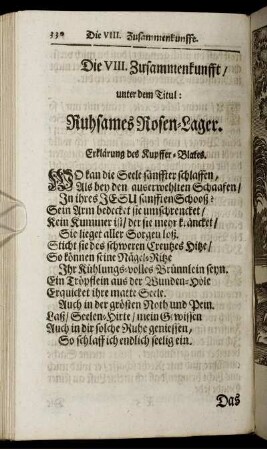 330 Die VIII. Zusammenkunfft.
Die VIII. Zusammenkunfft/
unter dem Titul:
Ruhsames Rosen-Lager.
Erklärung des Kupffer-Blates.
WO kan die Seele sänffter schlaffen,
Als bey den auserwehlten Schaafen/
In ihres JESU sanfften Schooß?
Sein Arm bedecket sie umschrencket/
Kein Kummer ist/ der sie mehr kräncket/
Sie lieget aller Sorgen loß.
Sticht sie des schweren Creutzes Hitze/
So können seine Nägel-Ritze
Ihr Kühlungs-volles Brünnlein seyn.
Ein Tröpflein aus der Wunden-Höle
Erquicket ihre matte Seele.
Auch in der grösten Noth und Pein.
Laß/ Seelen-Hirte/ mein Gewissen
Auch in dir solche Ruhe geniessen,
So schlaff ich endlich seelig ein.
Das